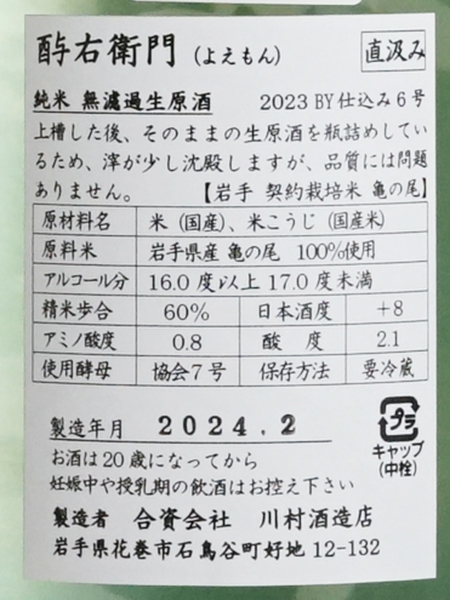 酉与右衛門 (よえもん) 直汲み
純米 無濾過生原酒 2023 BY仕込み6号
上槽した後、そのままの生原酒を瓶詰めしてい
るため、滓が少し沈殿しますが、品質には問題
ありません。 【岩手 契約栽培米 亀の尾】
原材料名 米 (国産)、米こうじ (国産米)
原料米 岩手県産 亀の尾 100%使用
アルコール分 16.0 度以上 17.0 度未満
精米歩合 60% 日本酒度 +8
アミノ酸度 0.8 酸 度 2.1
使用酵母 協会7号 保存方法 要冷蔵
製造年月 2024.2
プラ
キャップ
(中栓)
お酒は20歳になってから
妊娠中や授乳期の飲酒はお控え下さい
製造者 合資会社 川村酒造店
岩手県花巻市石鳥谷町好地 12-132